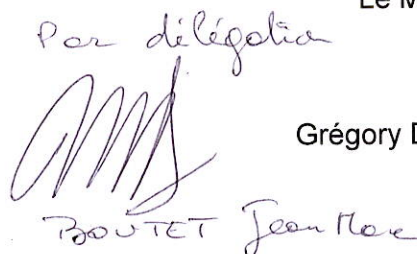 Le M
Par délégation
Grégory D
BOUTET Jean Marc